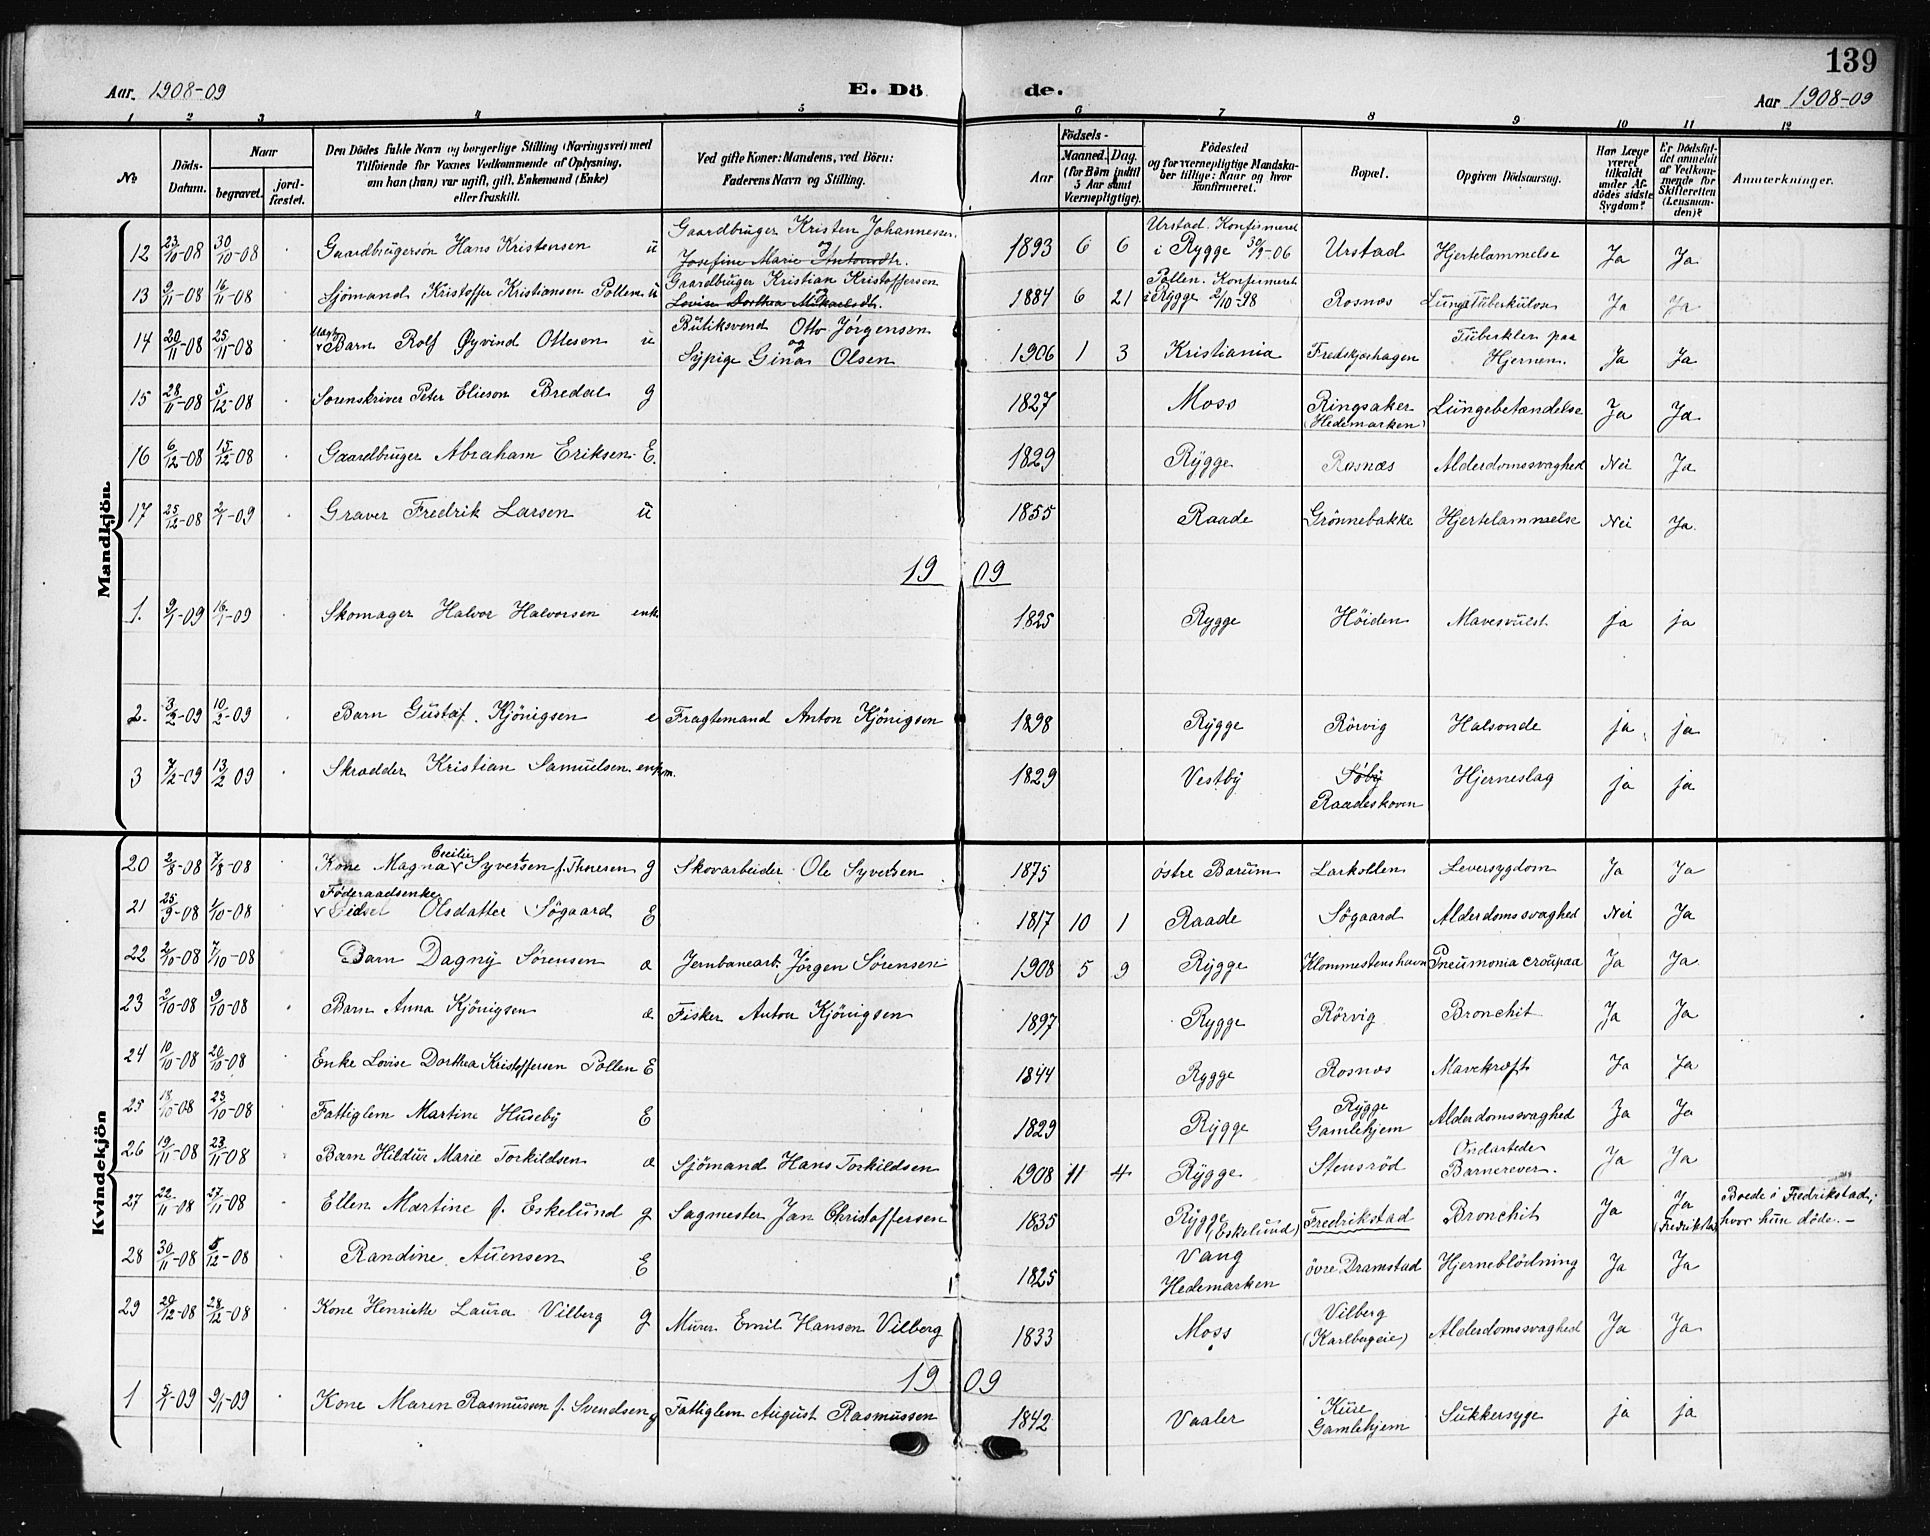 139
Aar. 1908-09
E. Dö de.
Aar 1908-09
1 2 3 4 5 6 7 8 9 10 11 12
No
Döds-Datum.
Naar
begravet.
jord-fæstet.
Den Dödes fulde Navn og borgerlige Stilling (Næringsvei) med
Tilföiende for Voxnes Vedkommende af Oplysning,
om han (hun) var ugift, gift, Enkemand (Enke)
eller fraskilt.
Ved gifte Koner: Mandens, ved Börn:
Faderens Navn og Stilling.
Födsels-
Aar
Maaned. Dag.
(for Børn indtil
5 Aar samt
Værnepligtige).
Födested
og for værnepligtige Mandska-
ber tillige: Naar og hvor
konfirmeret.
Bopæl.
Opgiven Dödsaarsag.
Har Læge
været
tilkaldt
under Af-
dödes sidste
Sygdom?
Er Dödsfal-
det anmeldt
af Vedkom-
mende for
Skifteretten
(Lensman-
den)?
Anmærkninger.
Mandkjön.
12 23/10-08 30/10-08 Gaardbrugersön Hans Kristensen u Gaardbruger Kristen Johannessen og Josefine Marie Antonsdtr. 1893 6 6 Urstad. Konfirmeret i Rygge 30/9-06 Urstad Hjertelammelse Ja Ja
13 9/11-08 16/11-08 Sjömand Kristoffer Kristiansen Pollen u Gaardbruger Kristian Kristoffersen og Lovise Dorthea Mikaelsdtr. 1884 6 21 Pollen. Konfirmeret i Rygge 2/10-98 Rosnæs Lungetuberkulose Ja Ja
14 20/11-08 25/11-08 Barn Rolf Øyvind Ottesen u Butiksvend Otto Jørgensen og Sypige Gina Olsen 1906 1 3 Kristiania Fredskjærhagen Tuberkler paa Hjernen. Ja Ja
15 28/11-08 5/12-08 Sorenskriver Peter Elieson Bredal g 1827 Moss Ringsaker (Hedemarken) Lungebetændelse Ja Ja
16 6/12-08 15/12-08 Gaardbruger Abraham Eriksen E. 1829 Rygge Rosnæs Alderdomssvaghed Nei Ja
17 25/12-08 2/1-09 Graver Fredrik Larsen u 1855 Raade Grönnebakke Hjertelammelse Nei Ja
19 09
1. 9/1-09 16/1-09 Skomager Halvor Halvorsen enk 1825 Rygge Höiden Mavesvulst ja ja
2. 3/2-09 10/2-09 Barn Gustaf Kjönigsen e Fragtemand Anton Kjönigsen 1898 Rygge Rörvig Halsonde ja ja
3 7/2-09 13/2 09 Skrædder Kristian Samuelsen enkm. 1829 Vestby Söby Raadeskoven Hjerneslag ja ja
Kvindekjön
20 2/8-08 7/8-08 Kone Magna Cecilie Syversten f. Thoresen g Skovarbeider Ole Syversen 1875 østre Bærum Larkollen Leversygdom Ja Ja
21 25/9-08 1/10-08 Føderaadsenke Sidsel Olsdatter Søgaard E 1817 10 1 Raade Søgaard Alderdomssvaghed Nei Ja
22 2/10-08 7/10-08 Barn Dagny Sörensen a Jernbanearb. Jörgen Sörensen 1908 5 9 Rygge Klommestenshavn Pneumonia croupaa Ja Ja
23 2/10-08 9/10-08 Barn Anna Kjönigsen a Fisker Anton Kjönigsen 1897 Rygge Rörvig Bronchit Ja Ja
24 10/10-08 20/10-08 Enke Lovise Dorthea Kristoffersen Pollen E 1844 Rygge Rosnæs Mavekræft Ja Ja
25 18/10-08 23/10-08 Fattiglem Martine Huseby E 1829 Rygge Rygge Gamlehjem Alderdomssvaghed Ja Ja
26 19/11-08 23/11-08 Barn Hildur Marie Torkildsen a Sjömand Hans Torkildsen 1908 11 4 Rygge Stensröd Ondartede Barnerever. Ja Ja
27 22/11-08 27/11-08 Ellen Martine f. Eskelund g Sagmester Jan Christoffersen 1835 Rygge (Eskelund) Fredrikstad Bronchit Ja Ja (Fredrikstad Boede i Fredrikstad, hvor hun döde.-
28 30/11-08 5/12-08 Randine Auensen E 1825 Vang Hedemarken övre Dramstad Hjerneblödning Ja Ja
29 20/12-08 28/12-08 Kone Henriette Laura Vilberg g Murer Emil Hansen Vilberg 1833 Moss Vilberg (Karlbogeie) Alderdomssvaghed Ja Ja
19 09
1 5/1-09 9/1-09 Kone Maren Rasmussen f. Svendsen g Fattiglem August Rasmussen 1842 Vaaler Kure Gamlehjem Sukkersyge ja ja